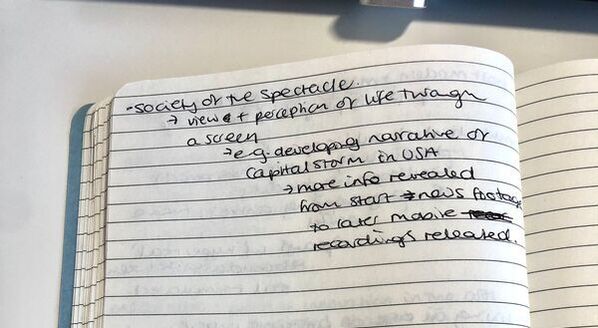 - society of the spectacle.
→ view + perception of life through
a screen
→ e.g. developing narrative of
Capital storm in USA
→ more info revealed
from start → news footage
to later mobile
recordings released.